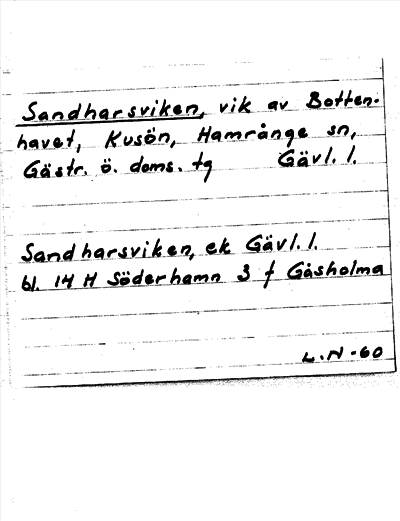 Sandharsviken, vik av Botten-
havet, Kusön, Hamrånge sn,
Gästr. ö. doms. tg Gävl. l.
Sandharsviken, ek Gävl. l.
bl. 14 H Söderhamn 3 f Gåsholma
L. N -60